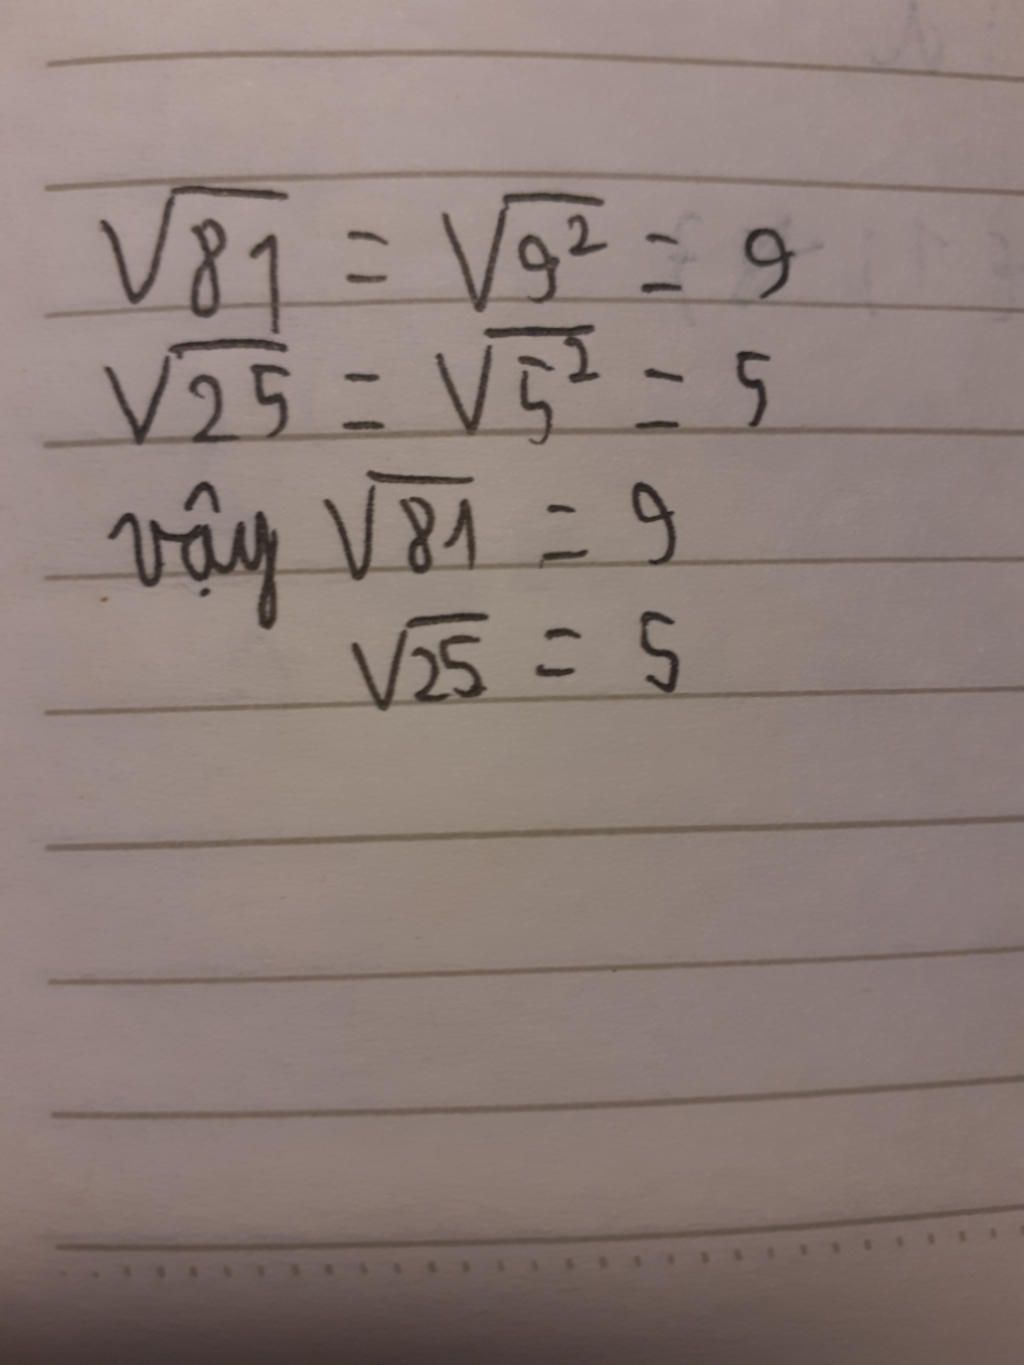 √81 = √9² = 9
√25 = √5² = 5
vậy √81 = 9
√25 = 5